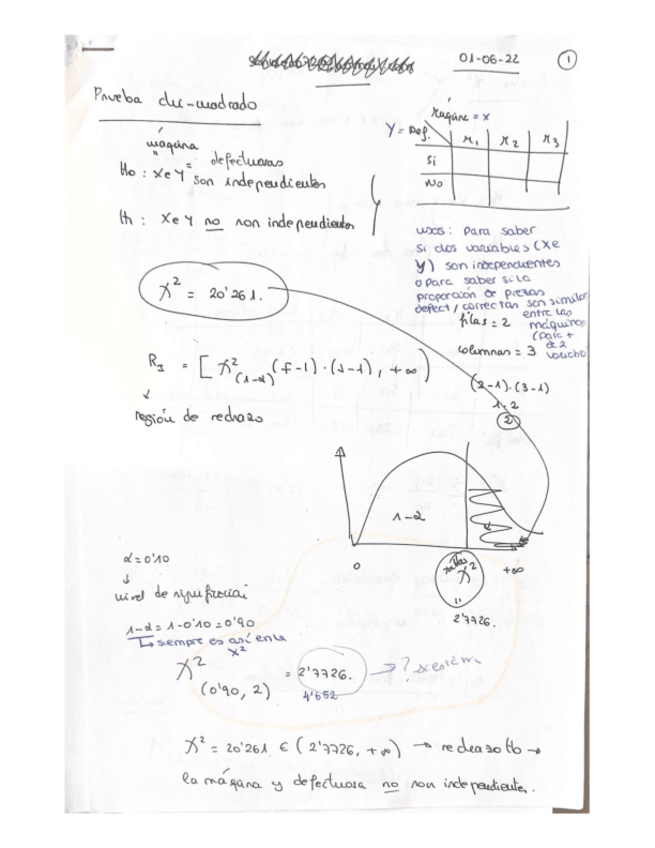 01-06-22
1
Prueba chi-cuadrado
máquina
" defectuosas
H0 : X e Y = son independientes
H1 : X e Y no son independientes
Máquina = X
Y = Def. M1 M2 M3
Si
No
usos: para saber
si dos variables (X e
Y) son independientes
o para saber si la
proporción de piezas
defect/correctas son similar
entre las
máquinas
(para +
de 2
filas = 2
columnas = 3
X² = 20'261.
RI = [ X²(1-α) (f-1)·(J-1), +∞)
↓
región de rechazo
(2-1)·(3-1)
1·2
2
1-α
0
X²
+∞
"
2'7726.
α = 0'10
↓
nivel de significaci
1-α = 1-0'10 = 0'90
↳ siempre es así en la
X²
X²(0'90, 2) = 2'7726. → ?
4'652
X² = 20'261 ∈ (2'7726, +∞) → rechazo H0 →
la máquina y defectuosa no son independiente.